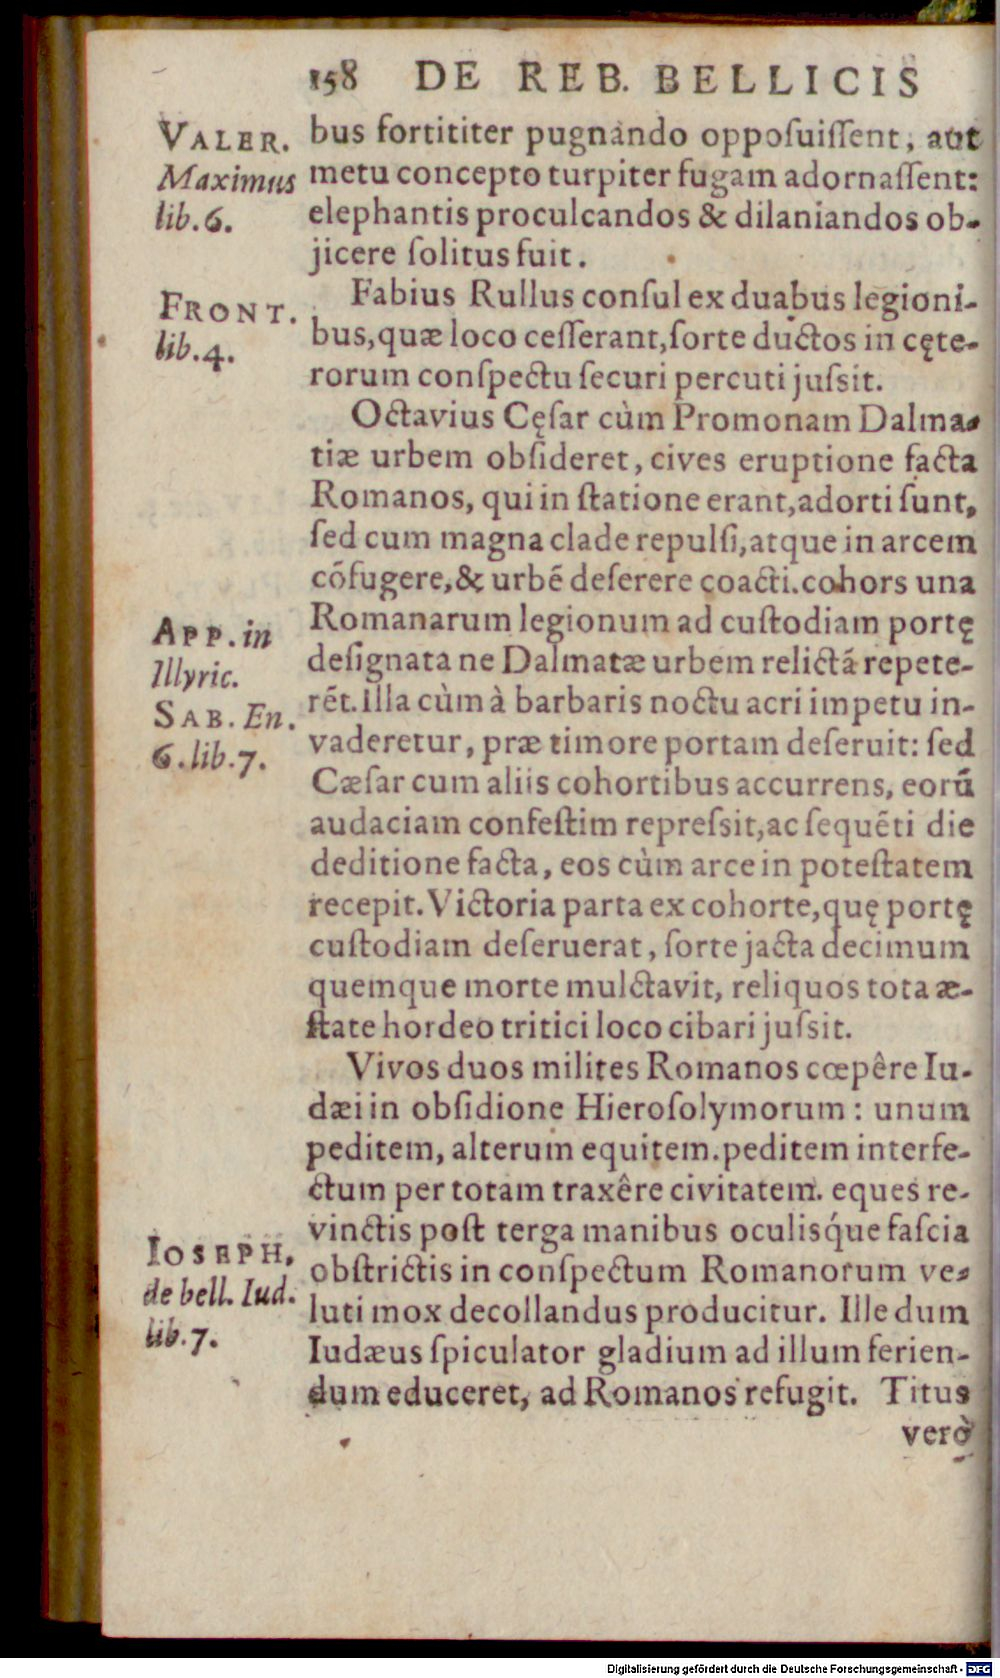 158 DE REB. BELLICIS
VALER.
Maximus
lib. 6.
bus fortititer pugnando opposuissent, aut
metu concepto turpiter fugam adornassent:
elephantis proculcandos & dilaniandos ob-
jicere solitus fuit.
FRONT.
lib. 4.
Fabius Rullus consul ex duabus legioni-
bus, quæ loco cesserant, sorte ductos in cęte-
rorum conspectu securi percuti jussit.
Octavius Cęsar cùm Promonam Dalma-
tiæ urbem obsideret, cives eruptione facta
Romanos, qui in statione erant, adorti sunt,
sed cum magna clade repulsi, atque in arcem
cōfugere, & urbē deserere coacti. cohors una
APP. in
Illyric.
SAB. En.
6. lib. 7.
Romanarum legionum ad custodiam portę
designata ne Dalmatæ urbem relictā repete-
rēt. illa cùm à barbaris noctu acri impetu in-
vaderetur, præ timore portam deseruit: sed
Cæsar cum aliis cohortibus accurrens, eorū
audaciam confestim repressit, ac sequēti die
deditione facta, eos cùm arce in potestatem
recepit. Victoria parta ex cohorte, quę portę
custodiam deseruerat, sorte jacta decimum
quemque morte mulctavit, reliquos tota æ-
state hordeo tritici loco cibari jussit.
Vivos duos milites Romanos cœpêre Iu-
dæi in obsidione Hierosolymorum: unum
peditem, alterum equitem. peditem interfe-
ctum per totam traxêre civitatem. eques re-
vinctis post terga manibus oculisq́ue fascia
IOSEPH.
de bell. Iud.
lib. 7.
obstrictis in conspectum Romanorum ve-
luti mox decollandus producitur. Ille dum
Iudæus spiculator gladium ad illum ferien-
dum educeret, ad Romanos refugit. Titus
verò
Digitalisierung gefördert durch die Deutsche Forschungsgemeinschaft - DFG